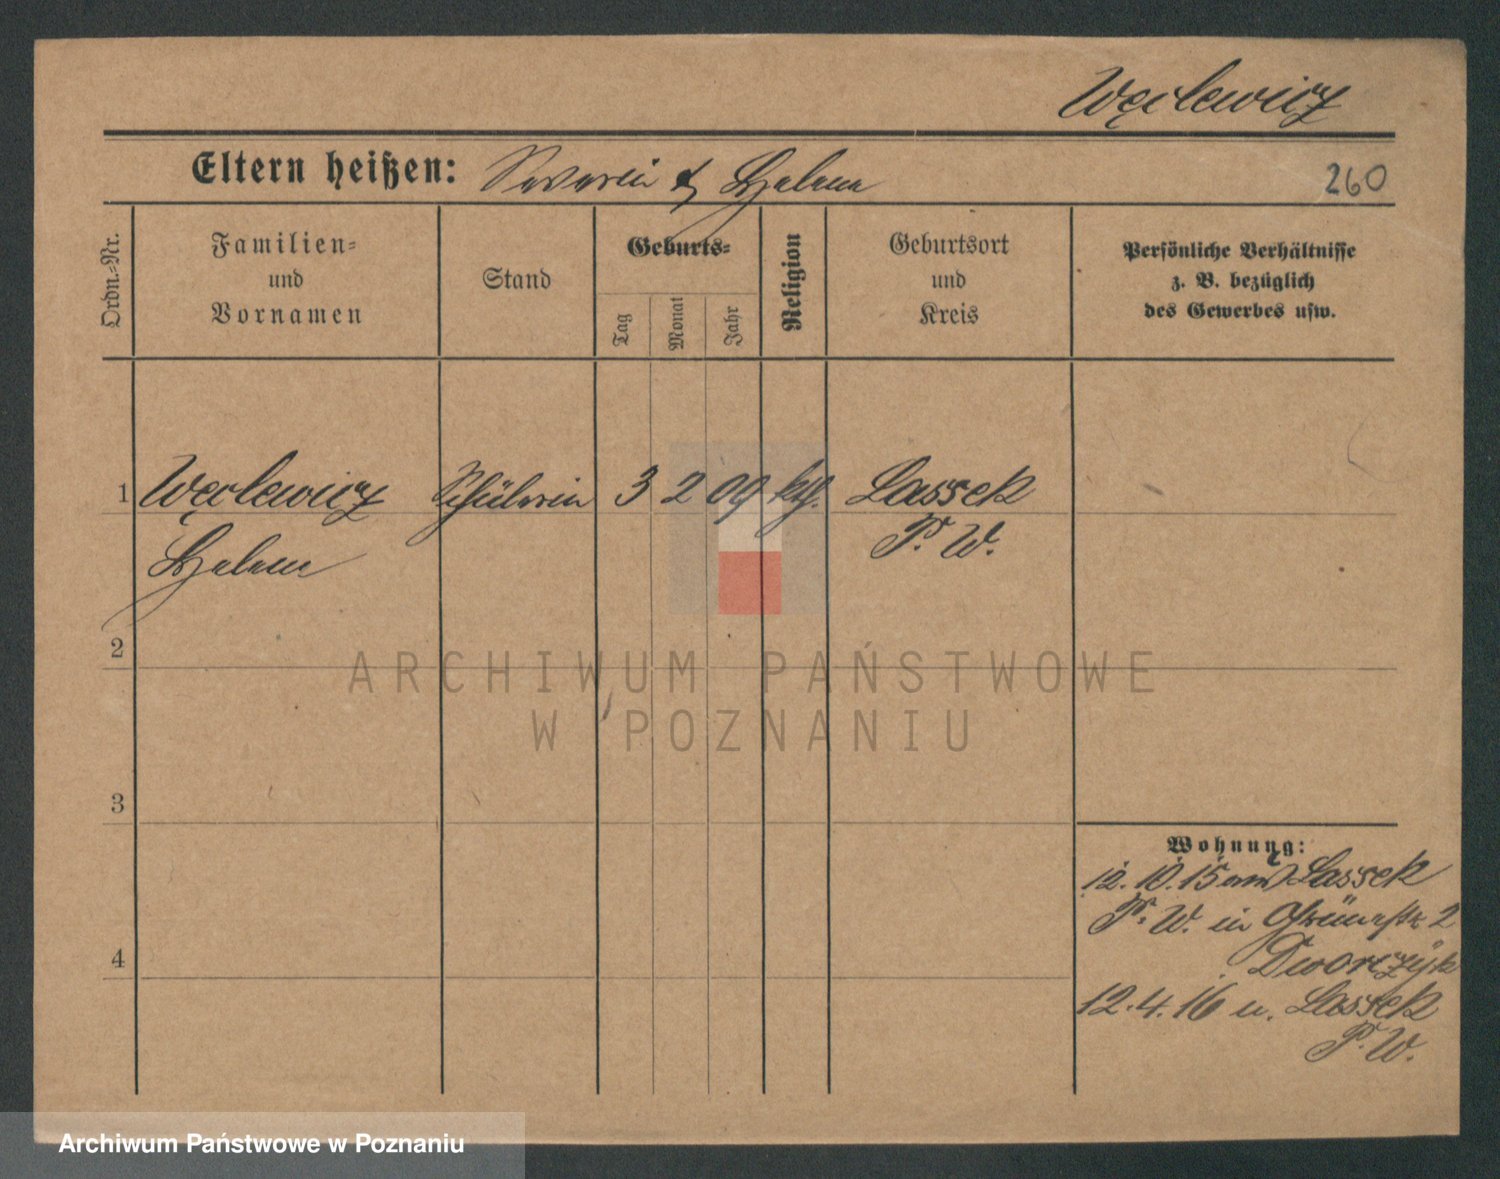 Węclewicz
Eltern heißen: Severin & Helene
260
Ordn.-Nr.
Familien-
und
Vornamen
Stand
Geburts-
Tag
Monat
Jahr
Religion
Geburtsort
und
Kreis
Persönliche Verhältnisse
z. B. bezüglich
des Gewerbes usw.
1 Węclewicz Schülerin 3 2 09 kth. Lassek
Helene P. W.
2
ARCHIWUM PAŃSTWOWE
W POZNANIU
3
Wohnung:
12. 10. 15 Lassek
P. W. in 2
4
Dworczyk
12. 4. 16 n. Lassek
P. W.
Archiwum Państwowe w Poznaniu